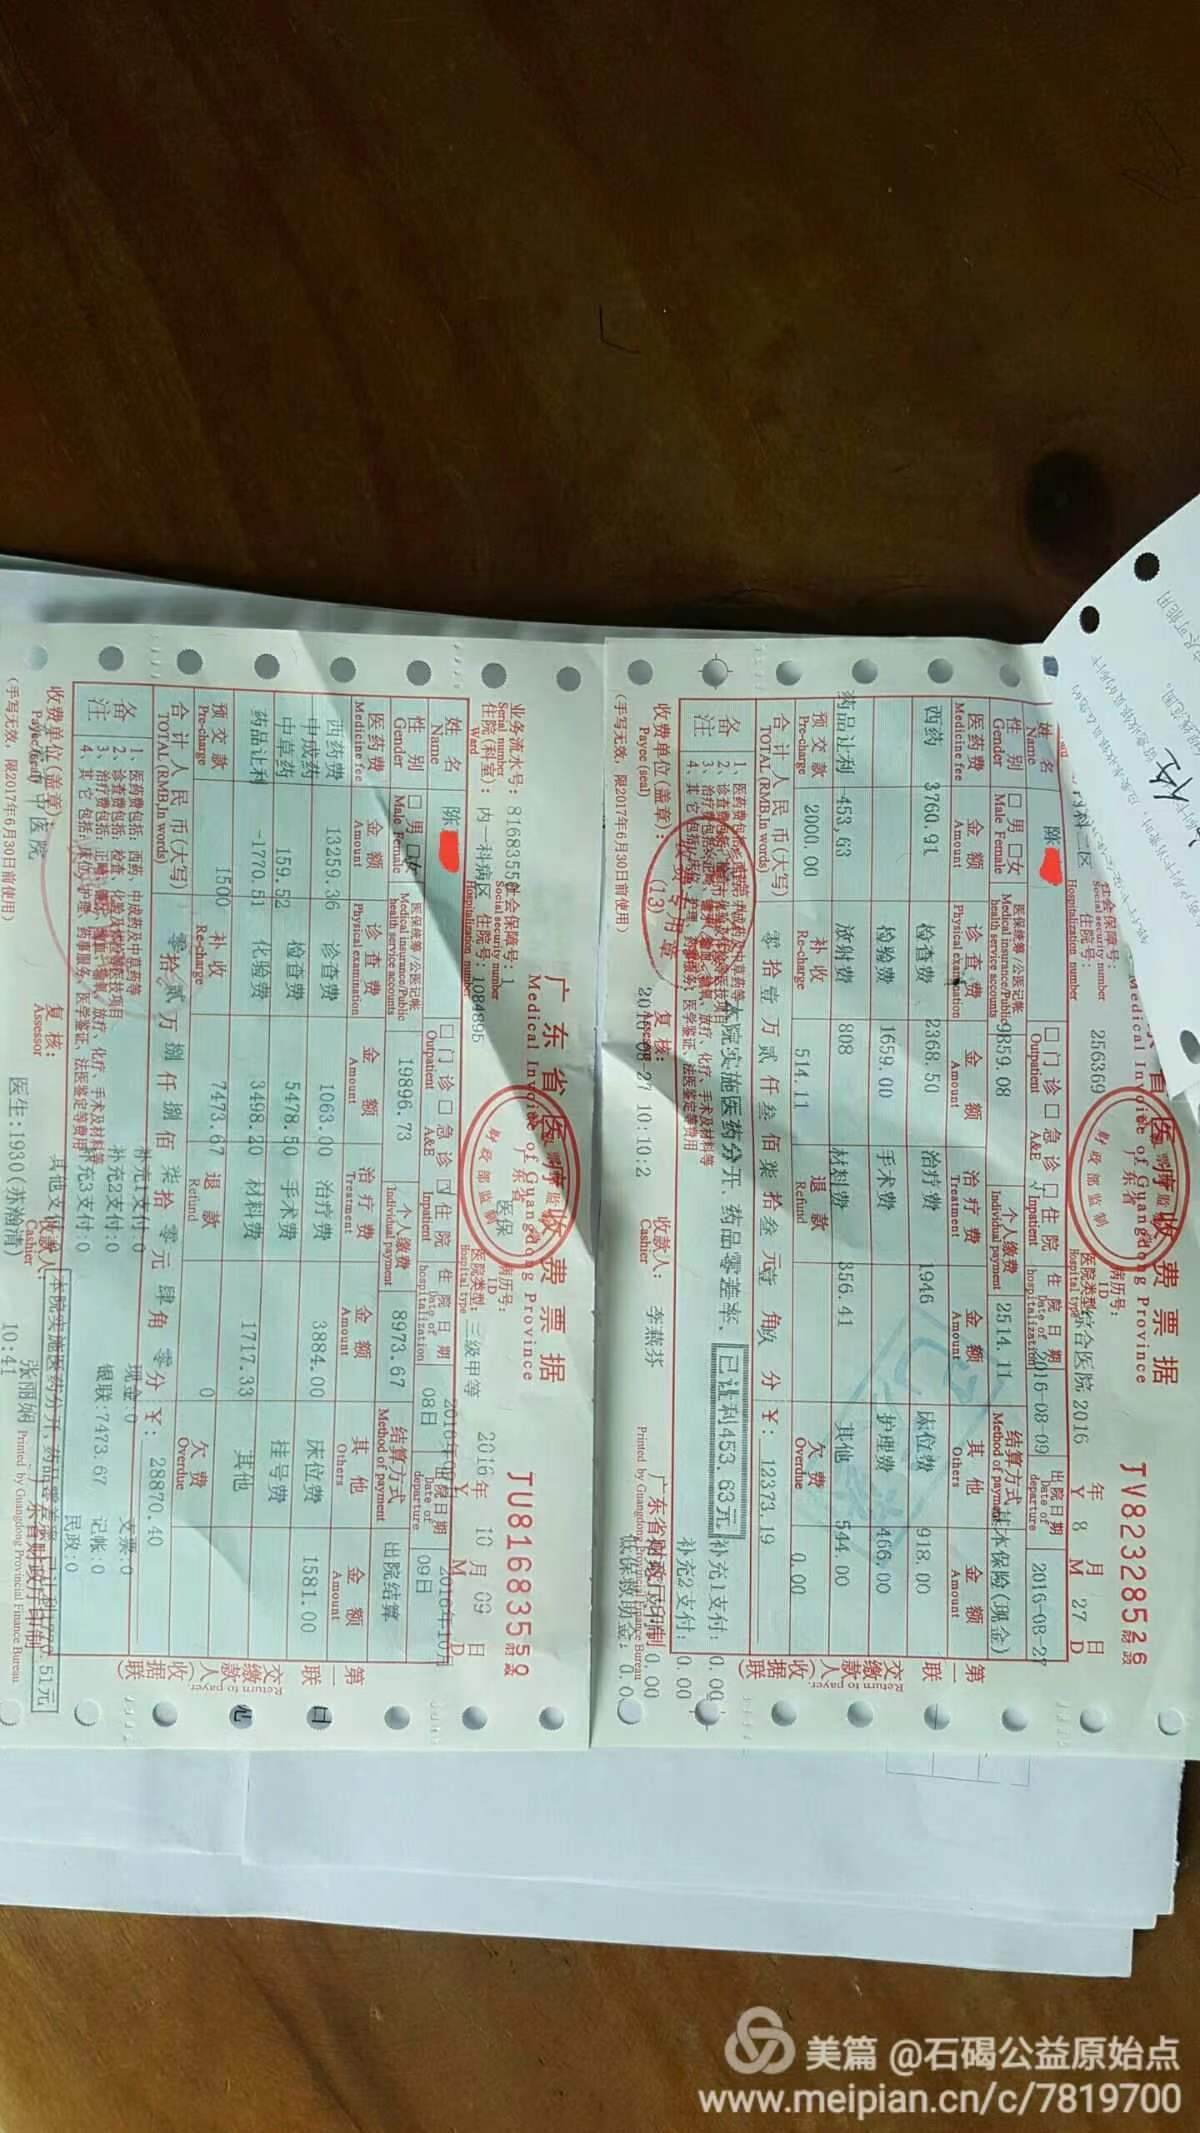 广东省医疗收费票据
Medical Invoice of Guangdong Province
JU81683550
业务流水号: 81683550
社会保障号: 1
Serial number
Social security number
病历号:
ID
2016年 10月 09日
住院(科室): 内一科病区 住院号: 1084895
Ward
Hospitalization number
医保
医院类型: 三级甲等
Hospital type
姓名 陈
Name
医保统筹/公医记帐
Medical insurance/Public health service accounts
19896.73
个人缴费 8973.67
Individual payment
结算方式 出院结算
Method of payment
性别 □男 □女
Gender Male Female
□门诊 □急诊 住院
Outpatient A&E Inpatient
住院日期
Date of hospitalization
08日
出院日期
Date of departure
2016年10月
09日
医药费 金额 诊查费 金额 治疗费 金额 其他 金额
Medicine fee Amount Physical examination Amount Treatment Amount Others Amount
西药费 13259.36 诊查费 1063.00 治疗费 3884.00 床位费 1581.00
中成药 159.52 检查费 5478.50 手术费 挂号费
中草药 化验费 3498.20 材料费 1717.33 其他
药品让利 -1770.51
预交款 1500 补收 7473.67 退款 0 欠费
Pre-charge Re-charge Refund Overdue
合计人民币(大写) 零拾贰万捌仟捌佰柒拾零元肆角零分 ¥: 28870.40
TOTAL(RMB,In words)
备注
1、医药费包括: 西药、中成药及中草药等
补充1支付:0
现金:0
支票:0
补充2支付:0
银联:7473.67
记帐:0
补充3支付:0
民政:0
收费单位(盖章): 中医院
Payee (seal)
复核:
Assessor
收款人: 张丽娴
Cashier
广东省财政厅印制
Printed by Guangdong Provincial Finance Bureau
(手写无效, 限2017年6月30日前使用)
医生:1930(苏瀚清) 10:41
第一联
收据(交缴款人)
Return to payer.
医疗收费票据
Medical Invoice of Guangdong Province
JV82328526
社会保障号:
Social security number
病历号:
ID
2016年 8月 27日
Y M D
内科二区 住院号: 256369
Hospitalization number
医院类型: 综合医院
Hospital type
姓名 陈
Name
医保统筹/公医记帐 9859.08
Medical insurance/Public health service accounts
个人缴费 2514.11
Individual payment
结算方式 基本保险(现金)
Method of payment
性别 □男 □女
Gender Male Female
□门诊 □急诊 住院
Outpatient A&E Inpatient
住院日期 2016-08-09
Date of hospitalization
出院日期 2016-08-27
Date of departure
医药费 金额 诊查费 金额 治疗费 金额 其他 金额
Medicine fee Amount Physical examination Amount Treatment Amount Others Amount
西药 3760.91 检查费 2368.50 治疗费 1946 床位费 918.00
检验费 1659.00 手术费 护理费 466.00
药品让利 -453.63 放射费 808 材料费 356.41 其他 544.00
预交款 2000.00 补收 514.11 退款 欠费 0.00
Pre-charge Re-charge Refund Overdue
合计人民币(大写) 零拾壹万贰仟叁佰柒拾叁元壹角玖分 ¥: 12373.19
TOTAL(RMB,In words)
备注
本院实施医药分开、药品零差率、已让利453.63元
补充1支付: 0.00
补充2支付: 0.00
收费单位(盖章):
Payee (seal)
收费专用章
(13)
复核:
Assessor
2016-08-27 10:10:2
收款人: 李燕芬
Cashier
广东省财政厅印制
Printed by Guangdong Provincial Finance Bureau
低保救助金: 0.0
(手写无效, 限2017年6月30日前使用)
第一联
收据(交缴款人)
Return to payer.
美篇 @石碣公益原始点
www.meipian.cn/c/7819700